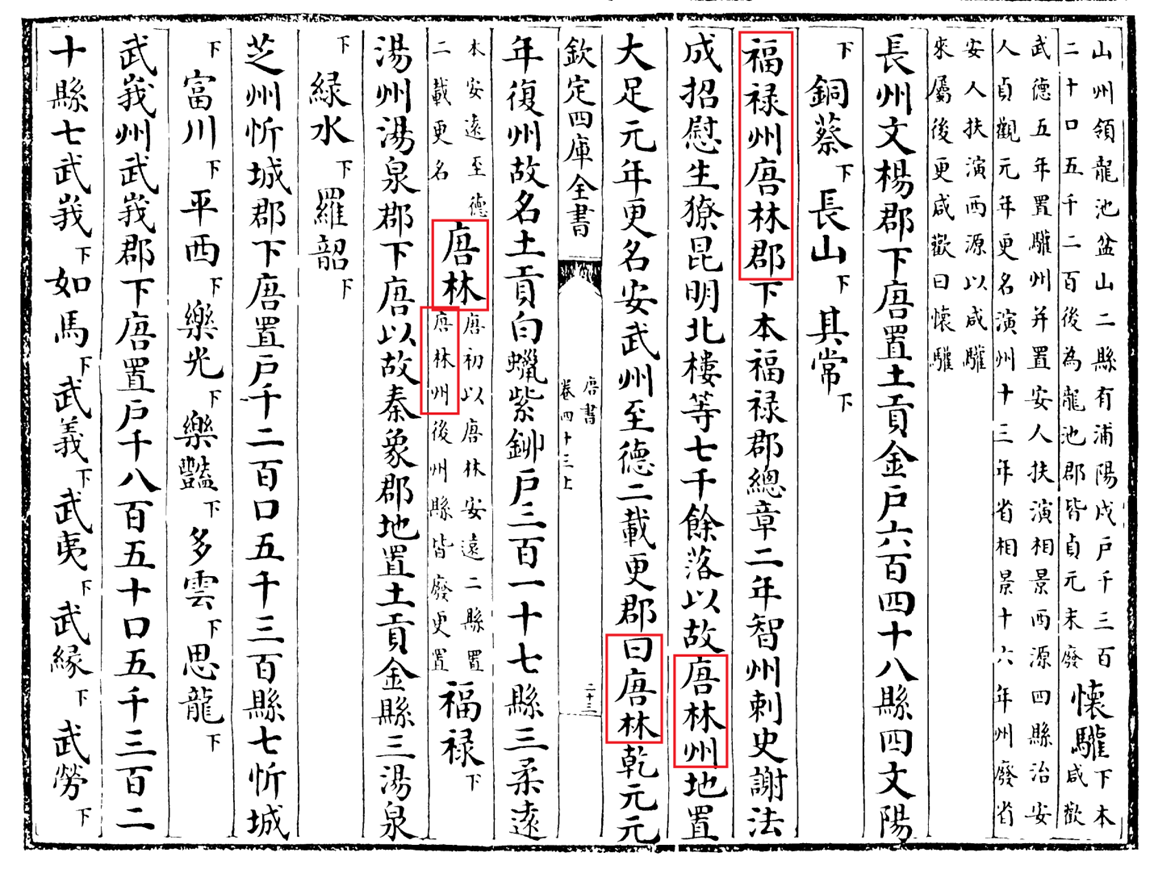 山州領龍池盆山二縣有浦陽戍戶千三百
二十口五千二百後為龍池郡皆貞元末廢
懷驩
下本
咸歡
武德五年置驩州并置安人扶演相景西源四縣治安
人貞觀元年更名演州十三年省相景十六年州廢省
安人扶演西源以咸驩
來屬後更咸歡曰懷驩
長州文楊郡下唐置土貢金戶六百四十八縣四文陽
下銅蔡下長山下其常下
福禄州唐林郡下本福禄郡總章二年智州刺史謝法
成招慰生獠昆明北樓等七千餘落以故唐林州地置
大足元年更名安武州至德二載更郡曰唐林乾元元
欽定四庫全書
唐書
卷四十三上
二十三
年復州故名土貢白蠟紫鉚戶三百一十七縣三柔逺
本安遠至德
二載更名
唐林
唐初以唐林安遠二縣置
唐林州後州縣皆廢更置
福禄下
湯州湯泉郡下唐以故秦象郡地置土貢金縣三湯泉
下緑水下羅韶下
芝州忻城郡下唐置戶千二百口五千三百縣七忻城
下富川下平西下樂光下樂豔下多雲下思龍下
武峩州武峩郡下唐置戶千八百五十口五千三百二
十縣七武峩下如馬下武義下武夷下武緣下武勞下